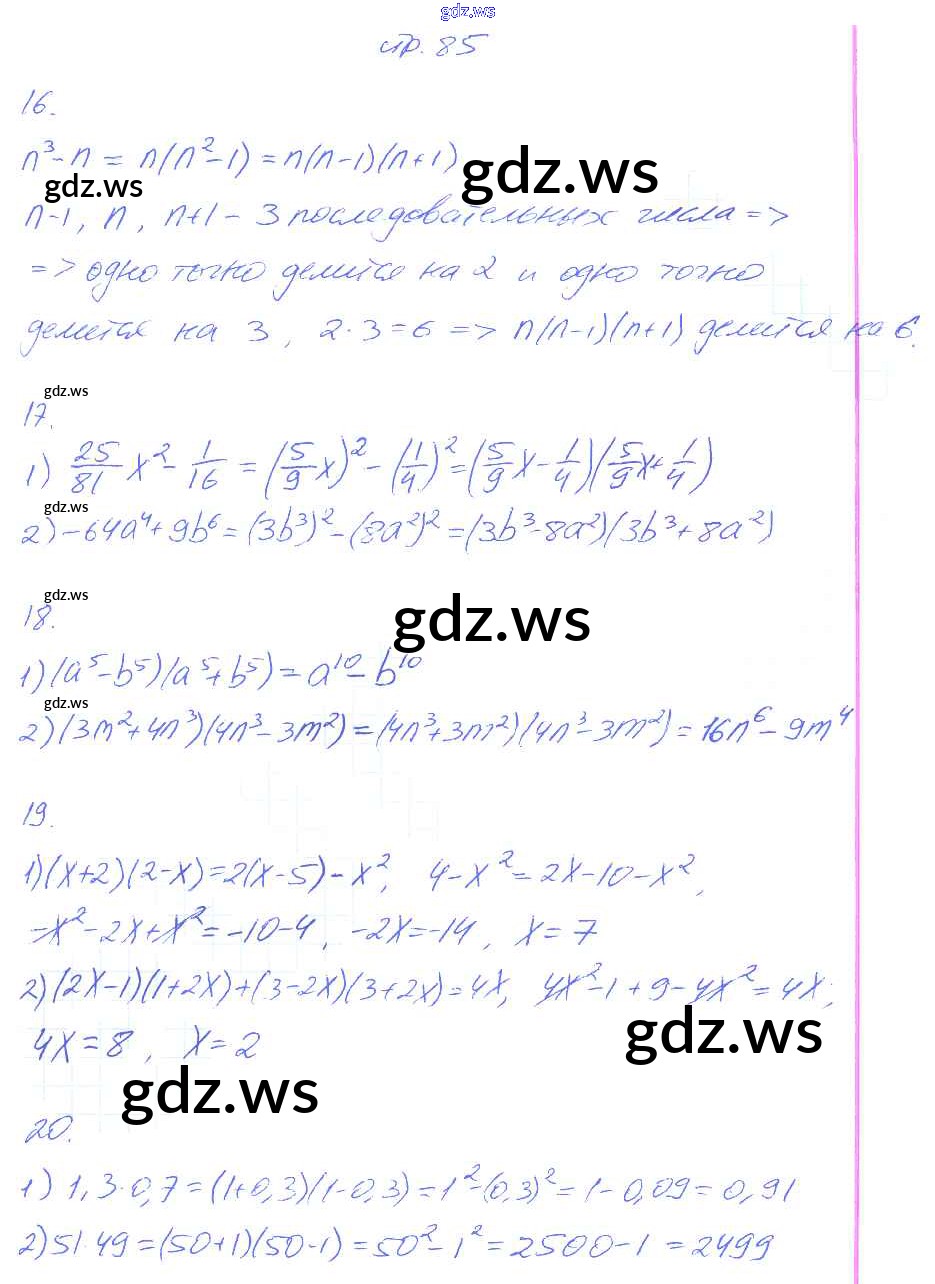 gdz.ws
стр. 85
16.
n³-n = n(n²-1) = n(n-1)(n+1)
gdz.ws
gdz.ws
n-1, n, n+1 - 3 последовательных числа =>
=> одно точно делится на 2 и одно точно
делится на 3, 2·3=6 => n(n-1)(n+1) делится на 6.
gdz.ws
17.
1) 25/81 x² - 1/16 = (5/9 x)² - (1/4)² = (5/9 x - 1/4)(5/9 x + 1/4)
gdz.ws
2) -64a⁴+9b⁶ = (3b³)² - (8a²)² = (3b³-8a²)(3b³+8a²)
gdz.ws
gdz.ws
18.
1) (a⁵-b⁵)(a⁵+b⁵) = a¹⁰-b¹⁰
gdz.ws
2) (3m²+4n³)(4n³-3m²) = (4n³+3m²)(4n³-3m²) = 16n⁶-9m⁴
19.
1) (x+2)(2-x)=2(x-5)-x², 4-x²=2x-10-x²,
-x²-2x+x²=-10-4, -2x=-14, x=7
2) (2x-1)(1+2x)+(3-2x)(3+2x)=4x, 4x²-1+9-4x²=4x;
gdz.ws
4x=8, x=2
gdz.ws
20.
1) 1,3·0,7=(1+0,3)(1-0,3)=1²-(0,3)²=1-0,09=0,91
2) 51·49=(50+1)(50-1)=50²-1²=2500-1=2499